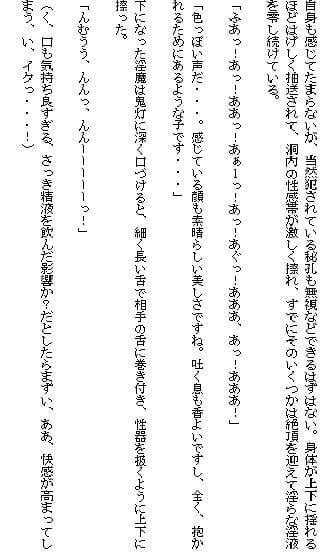 自身も感じてたまらないが、当然犯されている秘孔も無視などできるはずはない。身体が上下に揺れる
ほどはげしく抽送されて、洞内の性感帯が激しく擦れ、すでにそのいくつかは絶頂を迎えて淫らな淫液
を零し続けている。
「ふあっー！あっー！ああっー！あぁーっ！あっー！あぐっー！あああ、あっー！あああ！」
「色っぽい声だ・・・。感じている顔も素晴らしい美しさですね。吐く息も香よいですし、全く、抱か
れるためにあるような子です・・・」
下になった淫魔は鬼灯に深く口づけると、細く長い舌で相手の舌に巻き付き、性器を扱くように上下に
擦った。
「んむうう、んんっ、んんーーーーっ！」
（く、口も気持ち良すぎる、さっき精液を飲んだ影響か？だとしたらまずい、ああ、快感が高まってし
まう、い、イクっ・・・！）